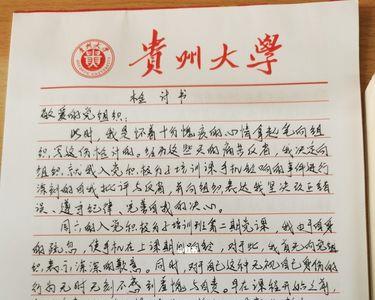 貴州大學
检讨书
敬爱的党组织：
此时，我是怀着十分愧疚的心情拿起笔向组
织写这份检讨的。经过这些天的痛苦反省，我决定向
组织就我入党积极分子培训课手机铃响的事件进行
深刻的自我批评与反省，并向组织表达我坚决改正错
误、遵守纪律、完善自我的决心。
周六的入党积极分子培训班第二期党课，我由于自身
的疏忽，使手机在上课期间响铃，对于此，我首先向党组
织表示深深的歉意。同时，对于自己这种无视自己身份的
行为无时无刻不感到羞愧与自责。早在课程开始之前，